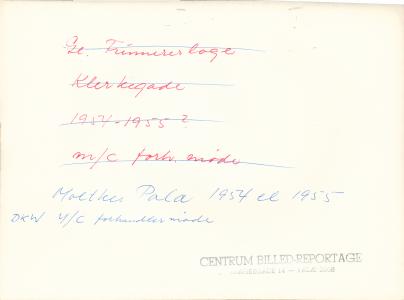 Gl. Frimurerloge
Klerkegade
1954-1955?
m/c forh. møde
Moltkes Palæ 1954 el 1955
DKW M/C forhandlermøde
CENTRUM BILLED-REPORTAGE